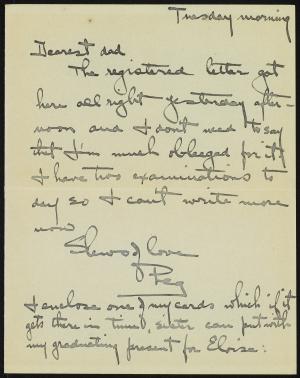 Tuesday morning
Dearest dad
The registered letter got
here all right yesterday after-
noon and I don't need to say
that I'm much obleeged for it!
I have two examinations to
day so I can't write more
now
Slews of love
Peg
I enclose one of my cards which if it
gets there in time, sister can put with
my graduating present for Eloise: